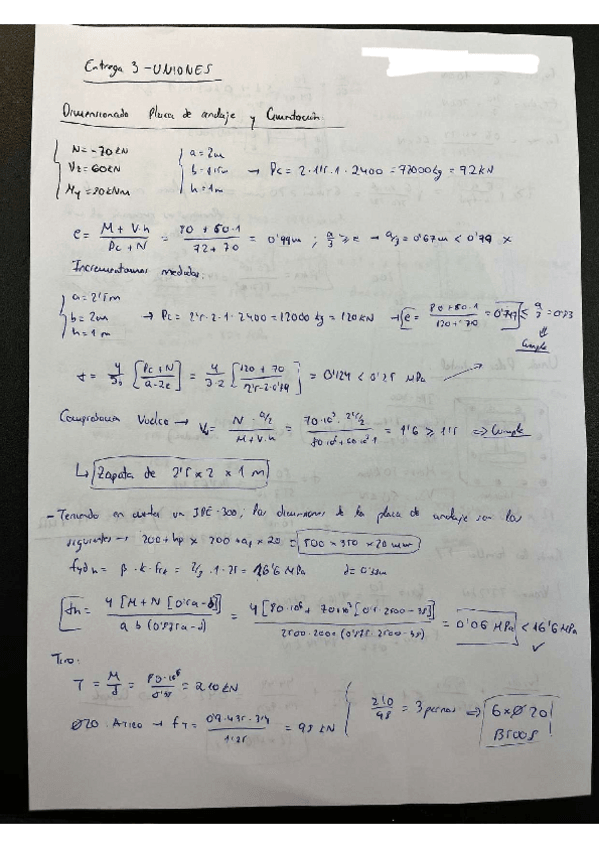 Entrega 3 - UNIONES
Dimensionado Placa de anclaje y Cimentación:
N = -70 kN
Vz = 60 kN
My = 80 kNm
a = 2m
b = 1'5m
h = 1m
→ Pc = 2·1'5·1·2400 = 72000 kg = 72 kN
e = M + V·h / Pc + N = 80 + 60·1 / 72 + 70 = 0'99m ; a/3 ≥ e → a/3 = 0'67m < 0'99 ×
Incrementamos medidas:
a = 2'5m
b = 2m
h = 1m
→ Pc = 2'5·2·1·2400 = 12000 kg = 120 kN → e = 80 + 60·1 / 120 + 70 = 0'747 ≤ a/3 = 0'83
Cumple
= 4/3b [Pc + N / a - 2e] = 4/3·2 [120 + 70 / 2'5 - 2·0'74] = 0'124 < 0'25 MPa
Comprobación Vuelco → = N · a/2 / M + V·h = 70·10³ · 2'5/2 / 80·10⁶ + 60·10³·1 = 1'6 ≥ 1'5 ⇒ Cumple
↳ Zapata de 2'5 × 2 × 1 m
- Teniendo en cuenta un IPE-300, las dimensiones de la placa de anclaje son las
siguientes → 200 + hp × 200 + × 20 = 500 × 350 × 20 mm
= β · k · = 2/3 · 1 · 25 = 16'6 MPa
= 4 [M + N [0'5a - d] / a b (0'875a - d) = 4 [80·10⁶ + 70·10³ [0'5·2500 - ] / 2500·2000 (0'875·2500 - ) = 0'06 MPa < 16'6 MPa
✓
Tiro:
T = M/d = 80·10⁶ / = 210 kN
Ø20 · → = / 1'25 = 98 kN
210/98 = 3 pernos ⇒ 6 × Ø20
B500S